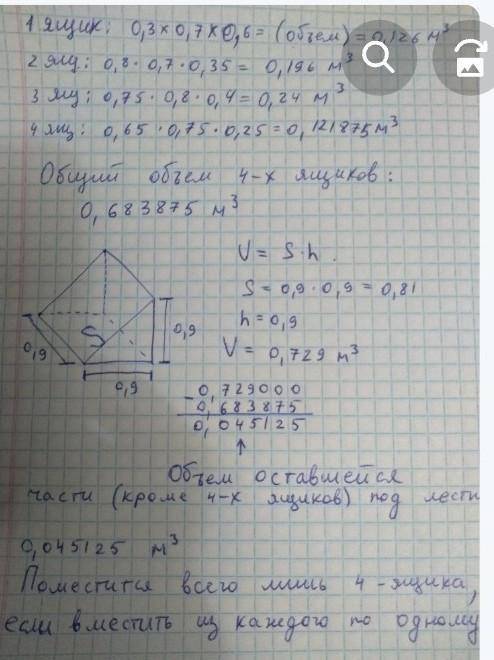 1 ящик: 0,3 × 0,7 × 0,6 = (объем) = 0,126 м³
2 ящ: 0,8 · 0,7 · 0,35 = 0,196 м³
3 ящ: 0,75 · 0,8 · 0,4 = 0,24 м³
4 ящ: 0,65 · 0,75 · 0,25 = 0,121875 м³
Общий объем 4-х ящиков:
0,683875 м³
V = S·h.
S = 0,9 · 0,9 = 0,81
h = 0,9
V = 0,729 м³
S
0,9
0,9
0,9
- 0,729000
0,683875
0,045125
↑
Объем оставшейся
части (кроме 4-х ящиков) под лестн
0,045125 м³
Поместится всего лишь 4-ящика,
если вместить из каждого по одному